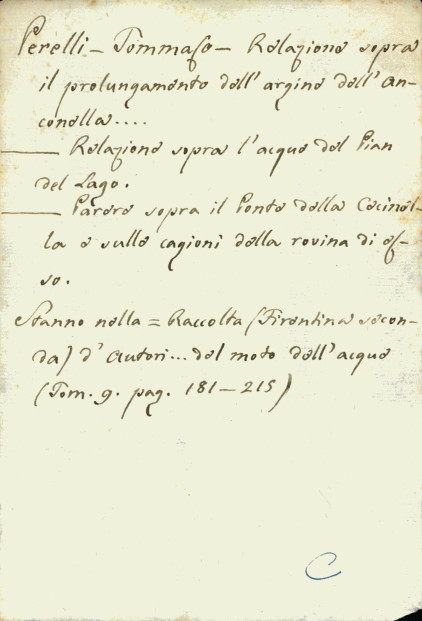 Perelli - Tommaso - Relazione sopra
il prolungamento dell' argine dell' An-
conella....
—— Relazione sopra l'acque del Pian
del Lago.
—— Parere sopra il Ponte della Cecinel-
la e sulle cagioni della rovina di es-
so.
Stanno nella = Raccolta (Firentina secon-
da) d' Autori... del moto dell'acque
(Tom. 9. pag. 181-215)
C